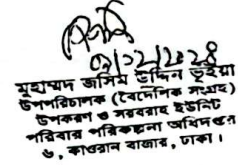 মুহাম্মদ জসিম উদ্দিন ভূঁইয়া
উপপরিচালক (বৈদেশিক সংগ্রহ)
উপকরণ ও সরবরাহ ইউনিট
পরিবার পরিকল্পনা অধিদপ্তর
৬, কাওরান বাজার, ঢাকা।